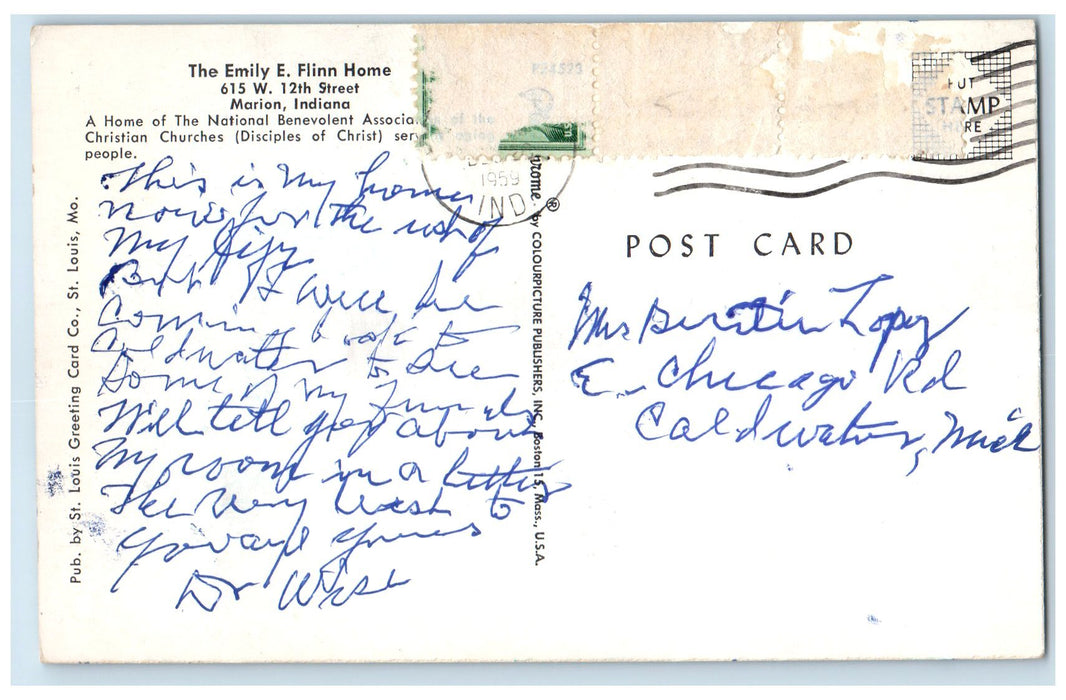 The Emily E. Flinn Home
615 W. 12th Street
Marion, Indiana
A Home of The National Benevolent Associa of the
Christian Churches (Disciples of Christ) ser aging
people.
This is my home
now for the rest of
My life
But I will be
Coming back to
Coldwater to see
Some of my Friends
Will tell you about
My room in a letter
The Very best to
you and yours
Dr Wise
Pub. by St. Louis Greeting Card Co., St. Louis, Mo.
1959
IND
rome ® by COLOURPICTURE PUBLISHERS, INC., Boston 15, Mass., U.S.A.
PUT
STAMP
HERE
POST CARD
Mrs Lopez
E. Chicago Rd
Coldwater, Mich